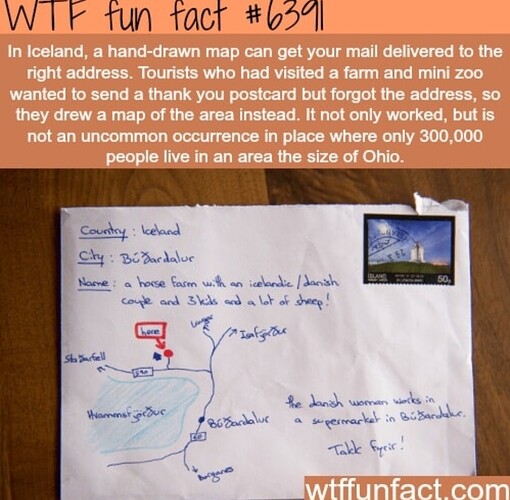 WTF fun fact #6391
In Iceland, a hand-drawn map can get your mail delivered to the
right address. Tourists who had visited a farm and mini zoo
wanted to send a thank you postcard but forgot the address, so
they drew a map of the area instead. It not only worked, but is
not an uncommon occurrence in place where only 300,000
people live in an area the size of Ohio.
Country : Iceland
City : Búðardalur
Name : a horse farm with an icelandic/danish
couple and 3 kids and a lot of sheep!
ISLAND
50g
here
Ísafjörður
590
Hvammsfjörður
Búðardalur
60
Borganes
the danish woman works in
a supermarket in Búðardalur.
Takk fyrir!
wtffunfact.com